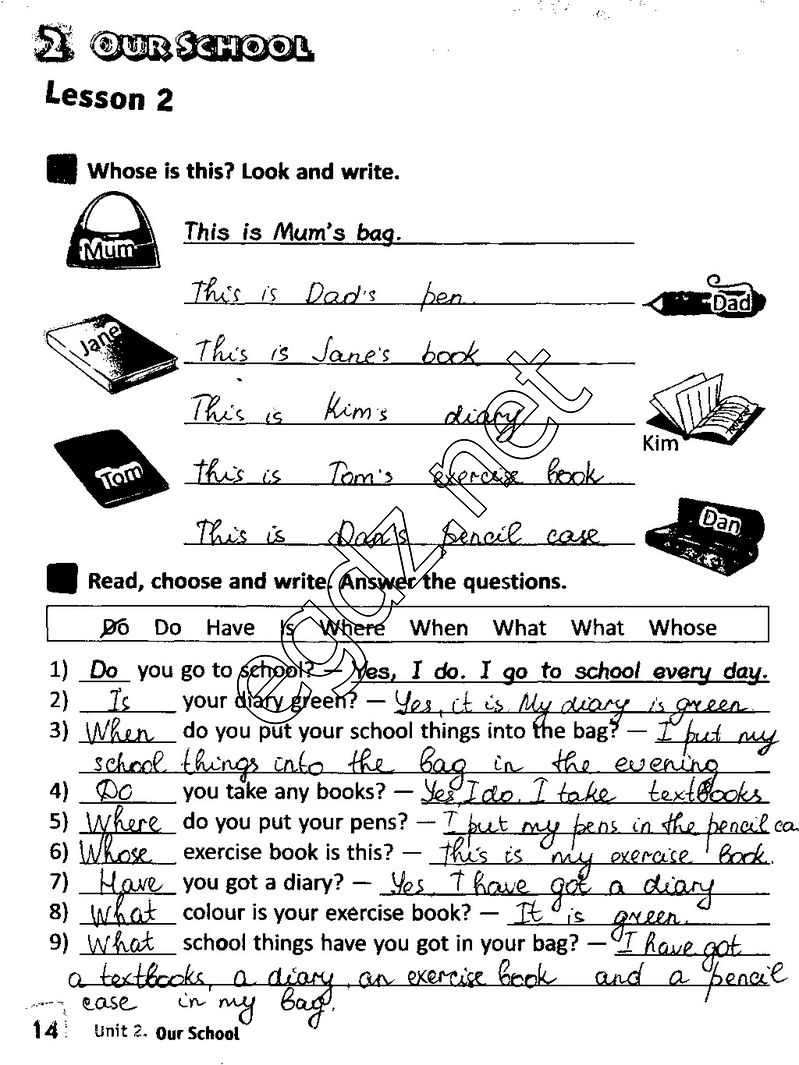 2 OUR SCHOOL
Lesson 2
Whose is this? Look and write.
Mum
This is Mum's bag.
This is Dad's pen
Dad
Jane
This is Jane's book
This is Kim's diary
Kim
Tom
This is Tom's exercise book
This is Dan's pencil case
Dan
egdz.net
Read, choose and write. Answer the questions.
Do Do Have Is Where When What What Whose
1) Do you go to school? — Yes, I do. I go to school every day.
2) Is your diary green? — Yes, it is. My diary is green.
3) When do you put your school things into the bag? — I put my
school things into the bag in the evening
4) Do you take any books? — Yes, I do. I take textbooks
5) Where do you put your pens? — I put my pens in the pencil ca
6) Whose exercise book is this? — This is my exercise book.
7) Have you got a diary? — Yes, I have got a diary
8) What colour is your exercise book? — It is green.
9) What school things have you got in your bag? — I have got
a textbooks, a diary, an exercise book and a pencil
case in my bag.
14 Unit 2. Our School